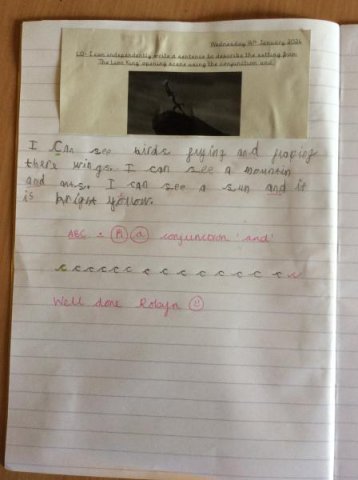 Wednesday 14th January 2026
LO: I can independently write a sentence to describe the setting from
The Lion King opening scene using the conjunction and.
I Can see birds flying and flaping
there wings. I can see a mountain
and I can see a sun and it
is bright yollow.
ABC . H a conjunction 'and'
c c c c c c c c c c c c c c c c
Well done Robyn